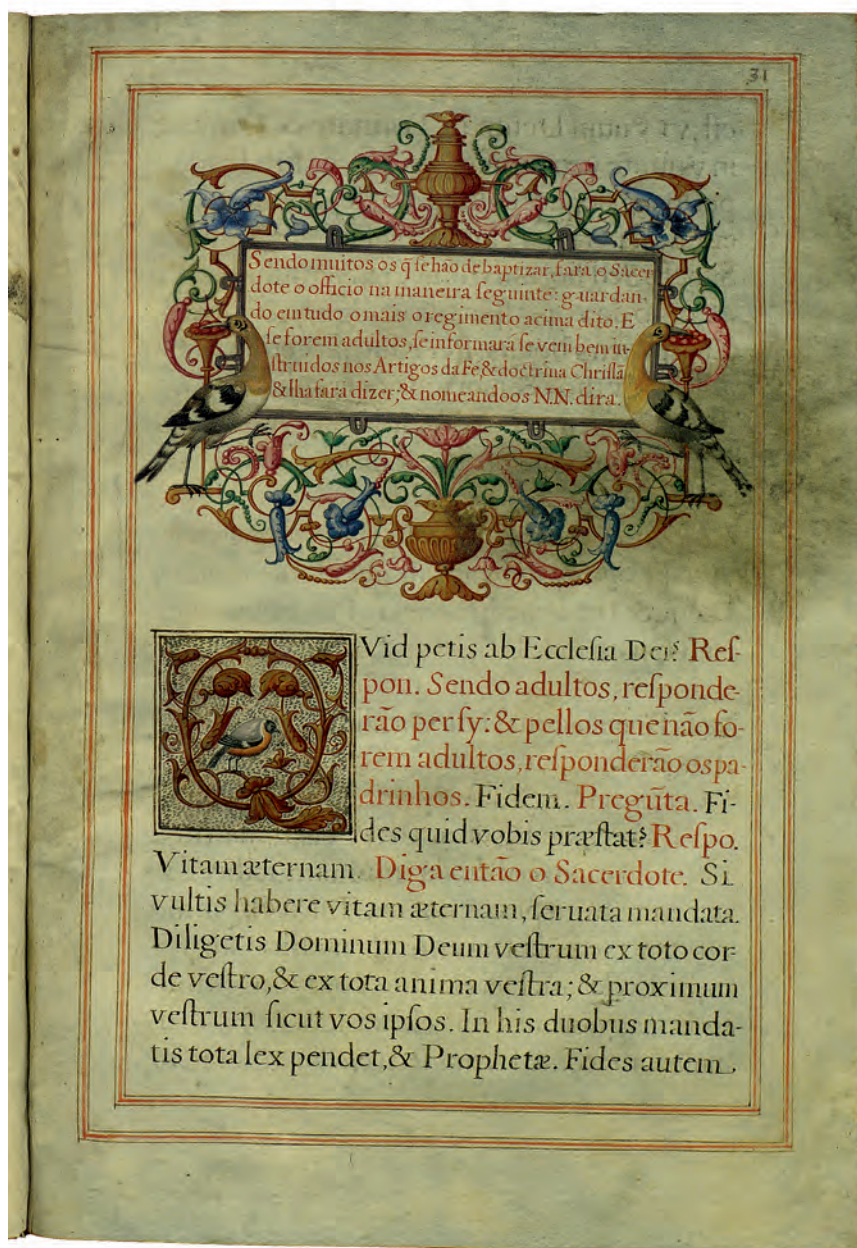 31
Sendo muitos os q̃ ſe hão de baptizar, fara o Sacer
dote o officio na maneira ſeguinte: guardan-
do em tudo o mais o regimento acima dito. E
ſe forem adultos, ſe informará ſe vem bem in-
ſtruidos nos Artigos da Fe, & doctrina Chriſtã
& lha fara dizer; & nomeandoos N.N. dira.
QVid petis ab Eccleſia Dei? Reſ-
pon. Sendo adultos, reſponde-
rão per ſy: & pellos que não fo-
rem adultos, reſponderão os pa-
drinhos. Fidem. Pregũta. Fi-
des quid vobis præſtat? Reſpo.
Vitam æternam. Diga então o Sacerdote. Si
vultis habere vitam æternam, ſeruata mandata.
Diligetis Dominum Deum veſtrum ex toto cor-
de veſtro, & ex tota anima veſtra; & proximum
veſtrum ſicut vos ipſos. In his duobus manda-
tis tota lex pendet, & Prophetæ. Fides autem